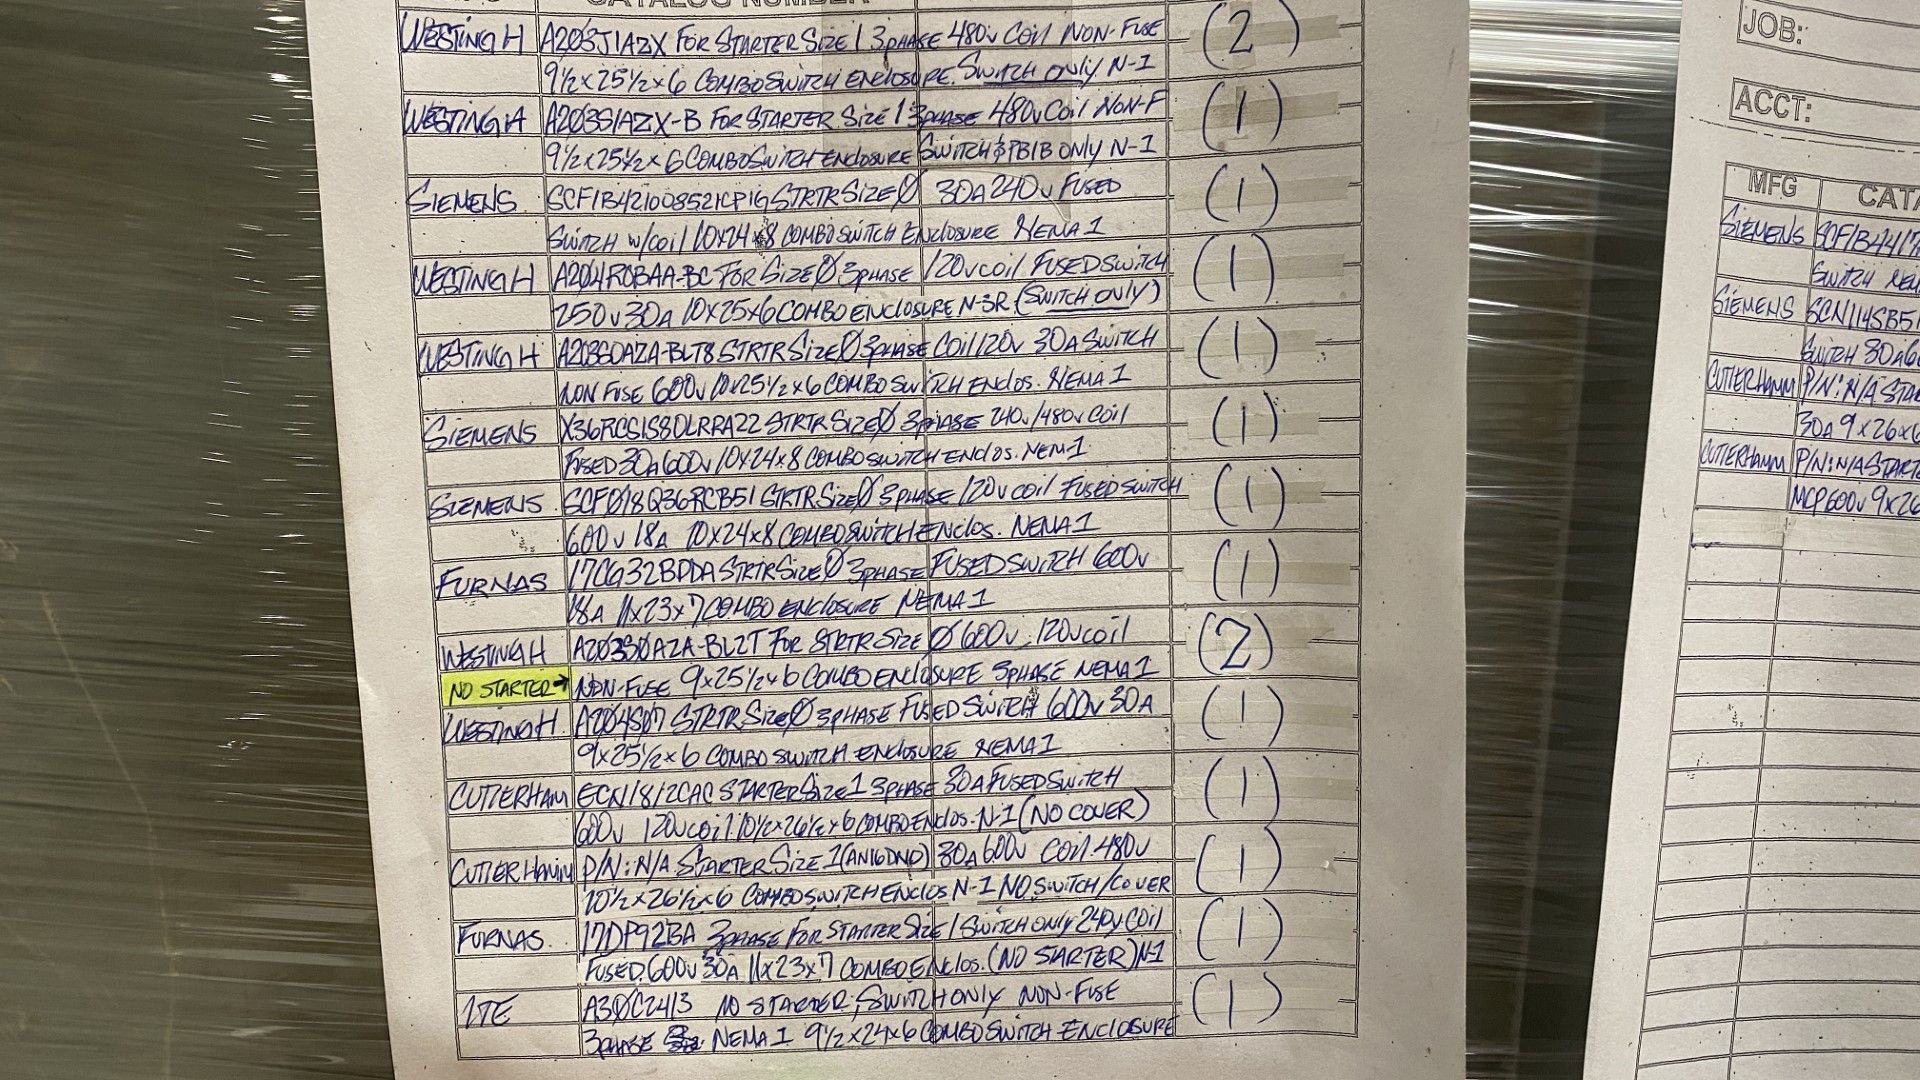 CATALOG NUMBER
WESTING H A203J1AZX FOR STARTER SIZE 1 3PHASE 480V COIL NON-FUSE (2)
9½x25½x6 COMBO SWITCH ENCLOSURE. SWITCH ONLY. N-1
WESTING H A203S1AZX-B FOR STARTER SIZE 1 3PHASE 480V COIL NON-F (1)
9½x25½x6 COMBO SWITCH ENCLOSURE SWITCH & PB1B ONLY N-1
SIEMENS SCF1B421008521CP1G STRTR SIZE Ø 30A 240V FUSED (1)
SWITCH W/COIL 10x24x8 COMBO SWITCH ENCLOSURE NEMA 1
WESTING H A204ROBAA-BC FOR SIZE Ø 3PHASE 120V COIL FUSED SWITCH (1)
250V 30A 10x25x6 COMBO ENCLOSURE N-3R (SWITCH ONLY)
WESTING H A203SOAZA-BLT8 STRTR SIZE Ø 3PHASE COIL 120V 30A SWITCH (1)
NON FUSE 600V 10x25½x6 COMBO SWITCH ENCLOS. NEMA 1
SIEMENS X36RCGIS8DLRRA22 STRTR SIZE Ø 3PHASE 240V/480V COIL (1)
FUSED 30A 600V 10x24x8 COMBO SWITCH ENCLOS. NEM-1
SIEMENS SCFØ18Q36RCB51 STRTR SIZE Ø 3PHASE 120V COIL FUSED SWITCH (1)
600V 18A 10x24x8 COMBO SWITCH ENCLOS. NEMA 1
FURNAS 17CG32BPDA STRTR SIZE Ø 3PHASE FUSED SWITCH 600V (1)
18A 11x23x7 COMBO ENCLOSURE NEMA 1
WESTING H A2Ø3SØAZA-BL2T FOR STRTR SIZE Ø 600V 120V COIL (2)
NO STARTER→ NON-FUSE 9x25½x6 COMBO ENCLOSURE 3PHASE NEMA 1
WESTING H. A2Ø4SØ7 STRTR SIZE Ø 3PHASE FUSED SWITCH 600V 30A (1)
9x25½x6 COMBO SWITCH ENCLOSURE NEMA 1
CUTLERHAM ECN1812CAC STARTER SIZE 1 3PHASE 30A FUSED SWITCH (1)
600V 120V COIL 10½x26½x6 COMBO ENCLOS. N-1 (NO COVER)
CUTLER HAMM P/N: N/A STARTER SIZE 1 (AN16DNO) 30A 600V COIL 480V (1)
10½x26½x6 COMBO SWITCH ENCLOS N-1 NO SWITCH/COVER
FURNAS. 17DP92BA 3PHASE FOR STARTER SIZE 1 SWITCH ONLY 240V COIL (1)
FUSED. 600V 30A 11x23x7 COMBO ENCLOS. (NO STARTER) N-1
ITE A3ØC2413 NO STARTER, SWITCH ONLY NON-FUSE (1)
3PHASE NEMA 1 9½x24x6 COMBO SWITCH ENCLOSURE
JOB:
ACCT:
MFG CATA
SIEMENS SCF1B441
SWITCH NEM
SIEMENS SCN114SB51
SWITCH 30A 60
CUTLERHAMM P/N: N/A STAR
30A 9x26x6
CUTLERHAMM P/N: N/A START
MCP 600V 9x26